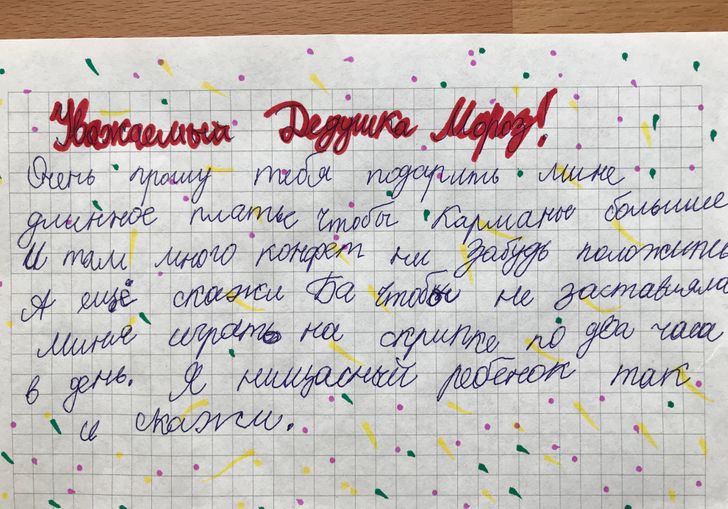 Уважаемый Дедушка Мороз!
Очень прошу тебя подарить мине
длинное платье чтобы карманы большие
И там много конфет ни забудь положить
А ещё скажи Ба чтобы не заставляла
миня играть на скрипке по два часа
в день. Я нищасный ребёнок так
и скажи.